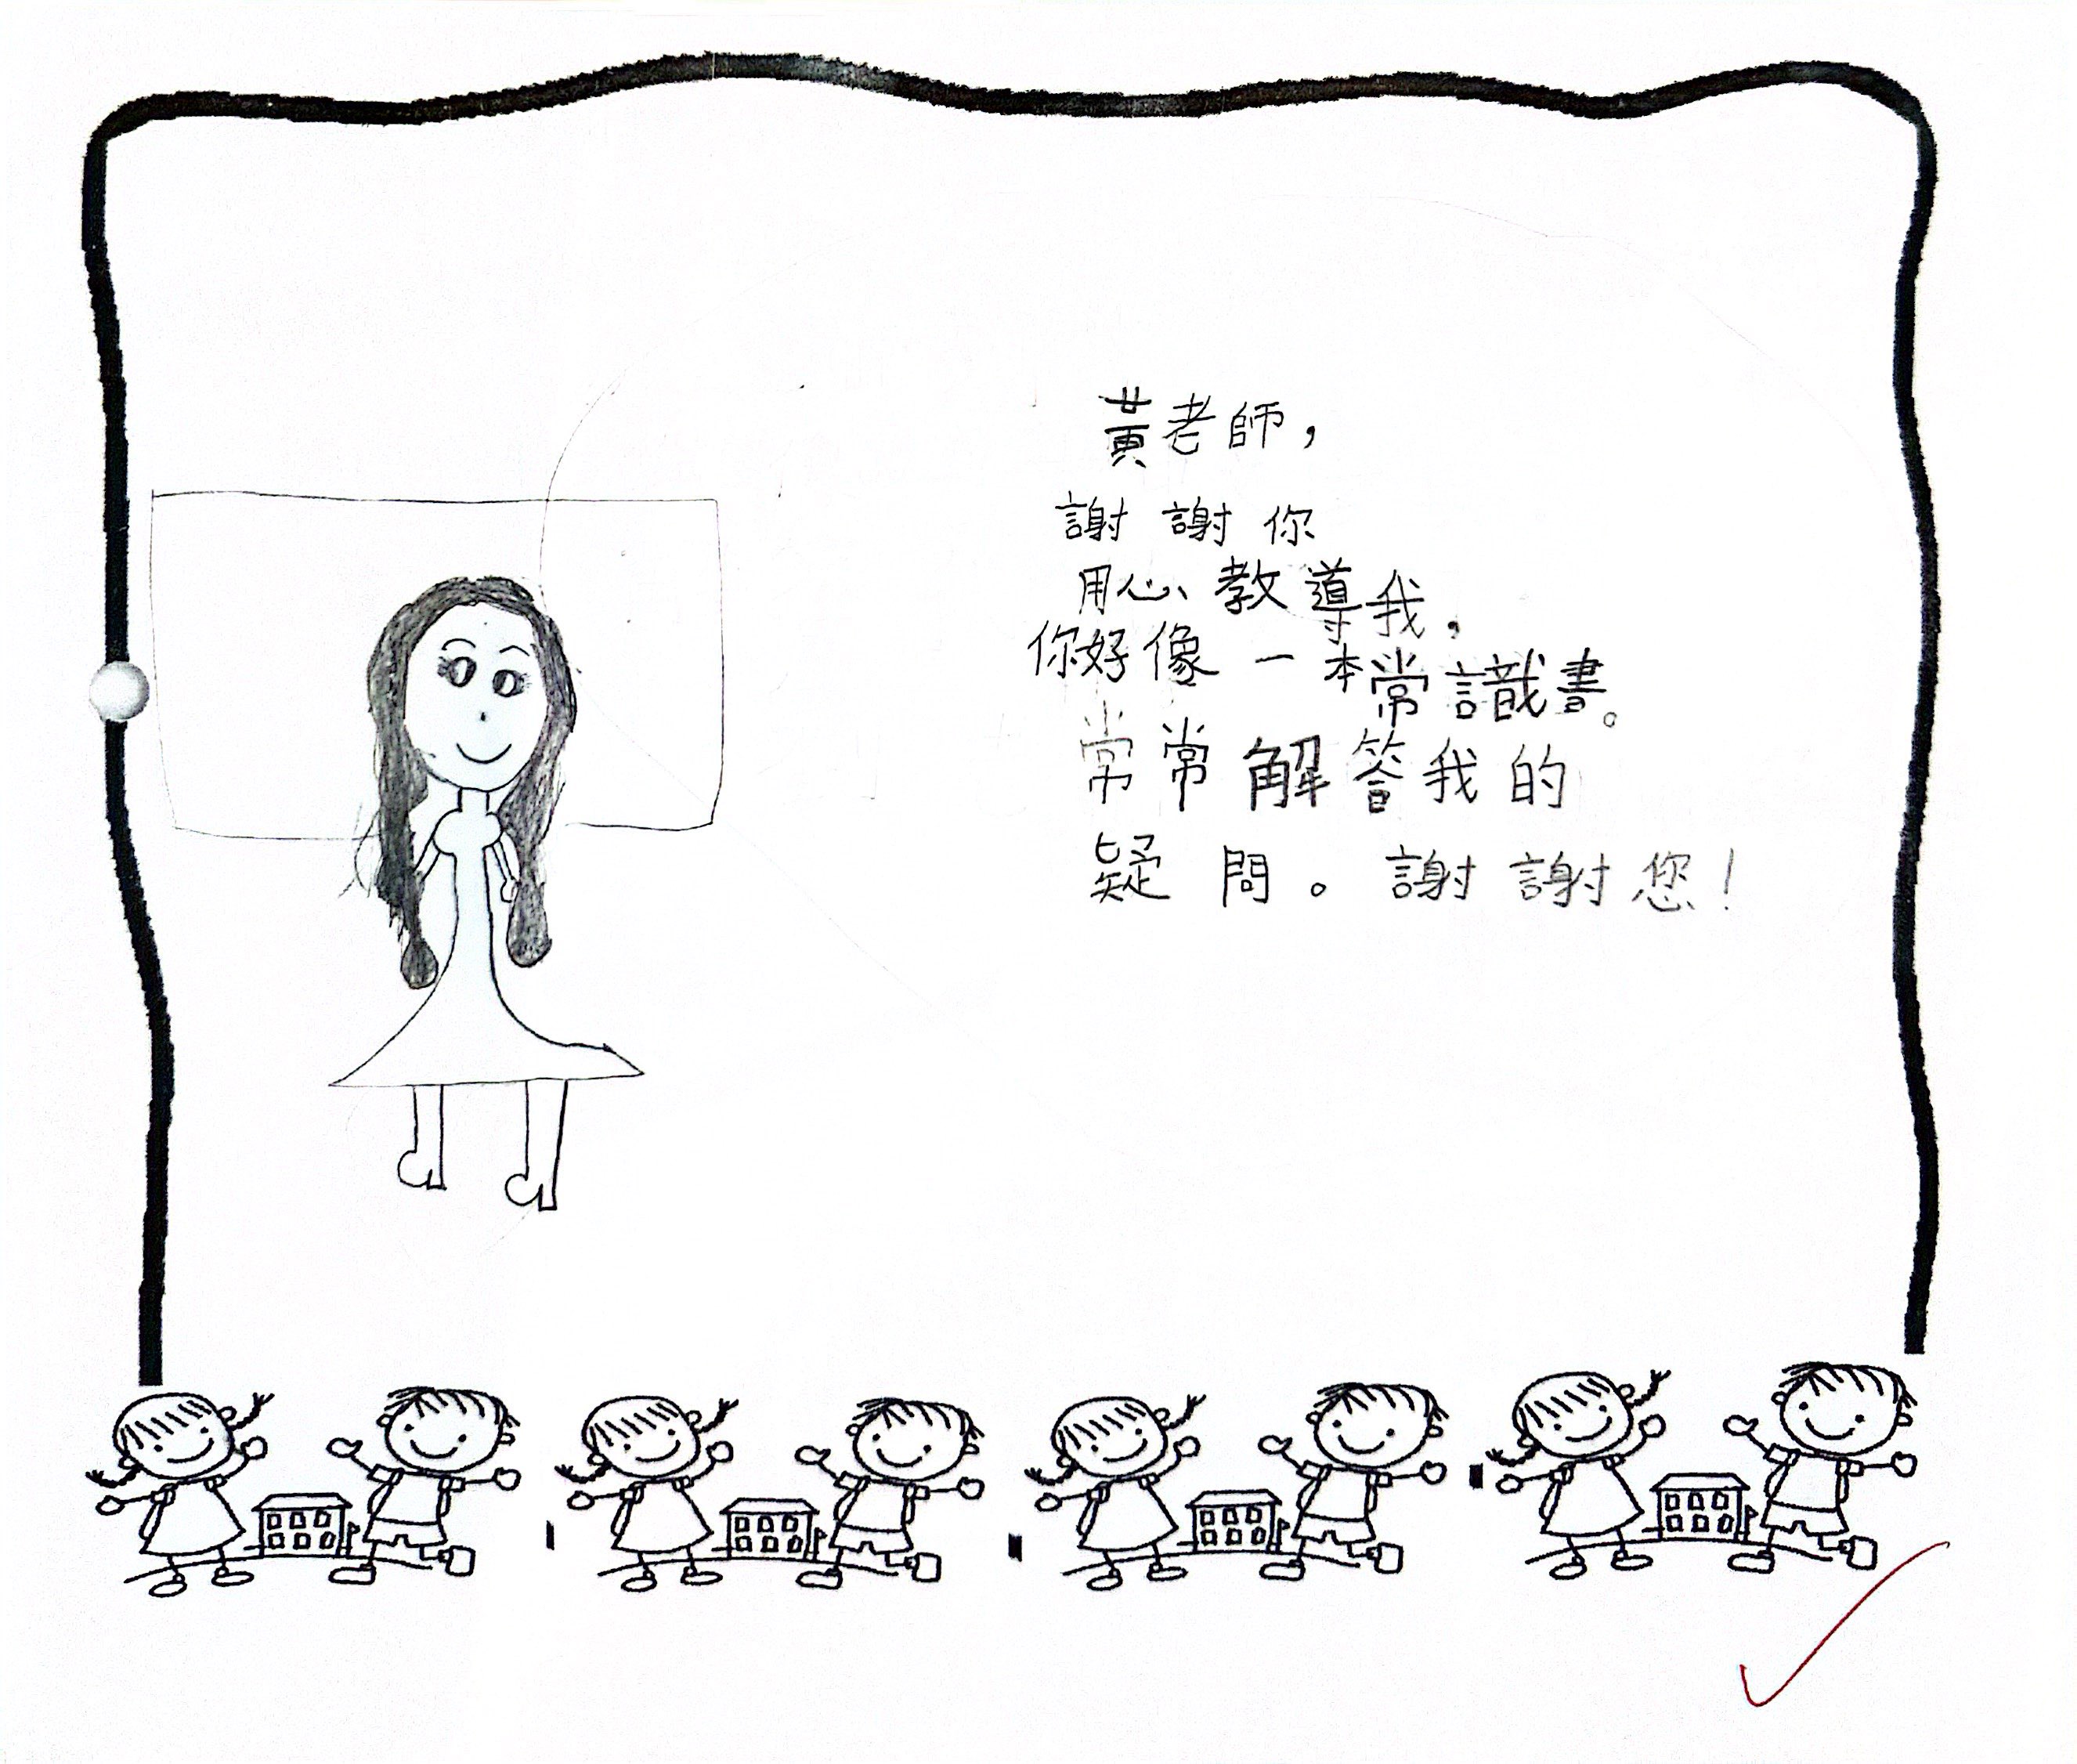 黃老師，
謝謝你
用心教導我，
你好像一本常識書。
常常解答我的
疑問。謝謝您！